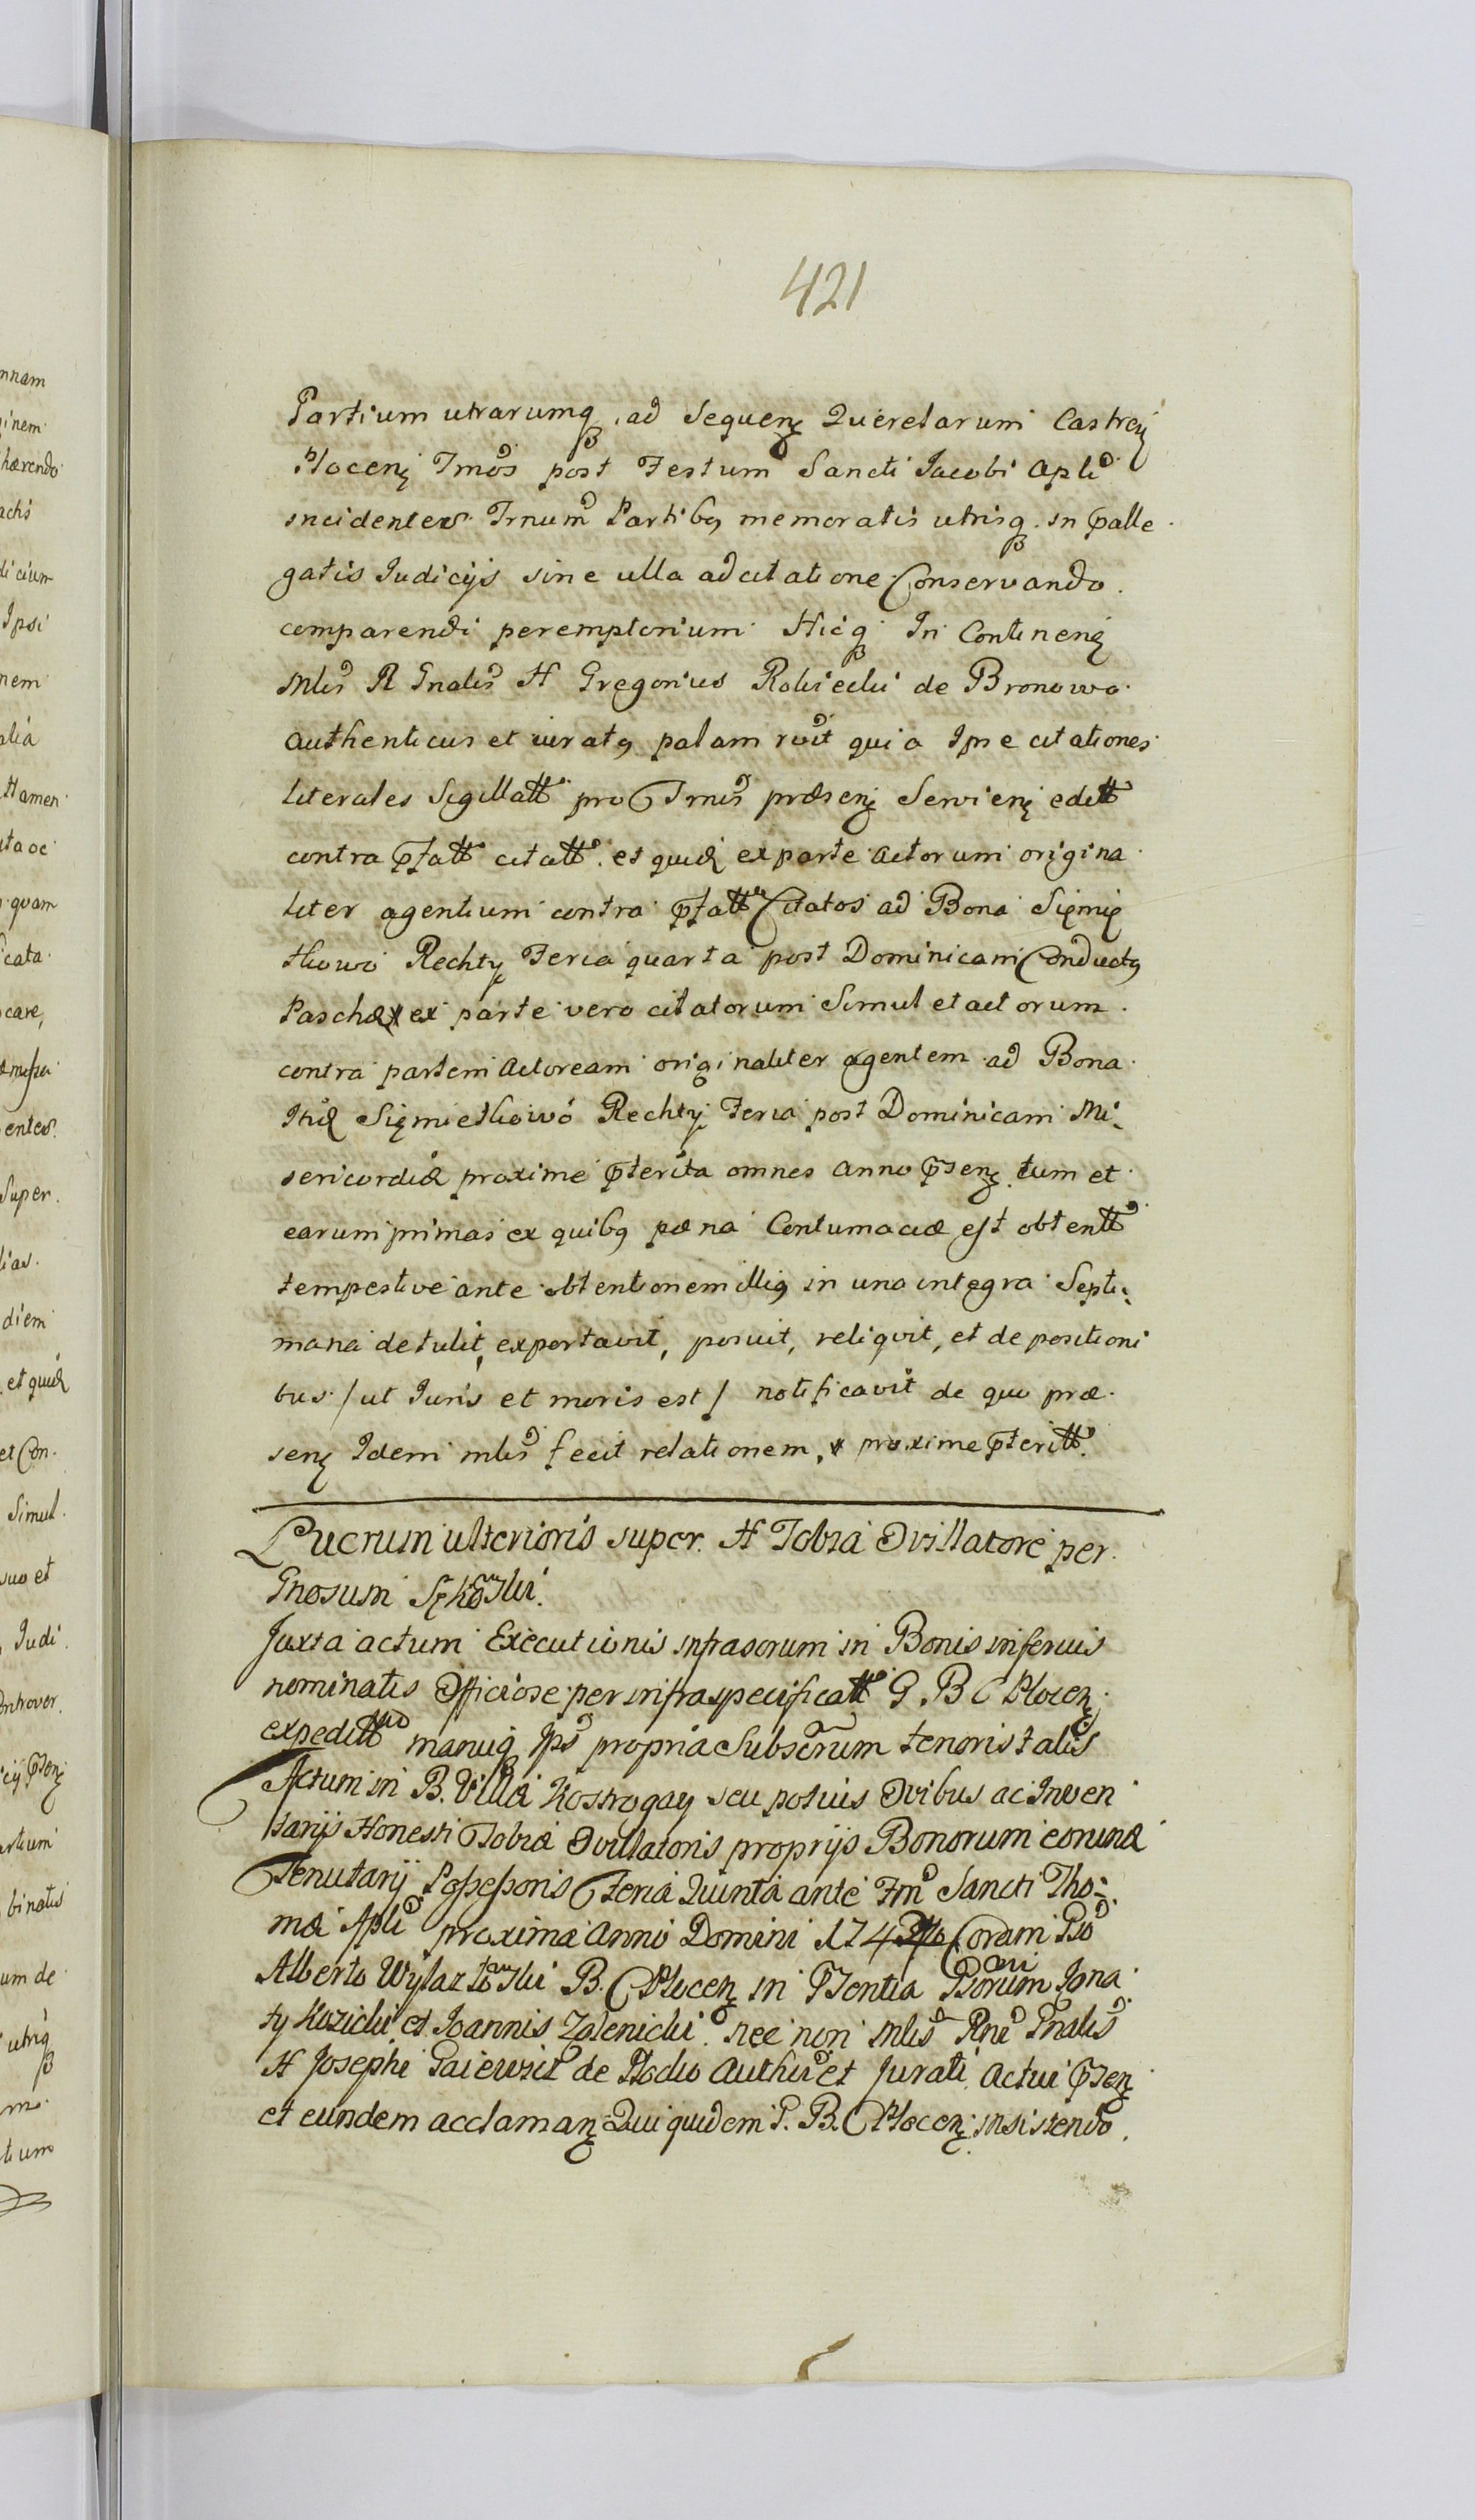 421
Partium utrarumq ad Sequen Querelarum Castren
Plocen Tmos post Festum Sancti Jacobi Apli
incidentes Trnum Partibq memoratis utrisq in palle
gatis Judicijs sine ulla adcitatione Conservando
comparendi peremptorium Hicq In Continen
Mlis R Gnalis H Gregorius Rokicki de Bronowo
authenticus et iuratq palam rvit quia Ipse citationes
literales Sigillatt pro Trnis præsen Servien editt
contra pfatt citatt et quid ex parte Actorum origina
liter agentium contra pfatt Citatos ad Bona Siemię
tkowo Rechty Feria quarta post Dominicam Conductq
Paschæ ex parte vero citatorum Simul et actorum
contra partem Actoream originaliter agentem ad Bona
Itid Siemietkowo Rechty Feria post Dominicam Mi
sericordiæ proxime pterita omnes anno psen tum et
earum primas ex quibq pæna Contumaciæ est obtentt
tempestive ante obtentionem illiq in una integra Septi
mana detulit, exportavit, posuit, reliqvit, et de positioni
bus / ut Juris et moris est / notificavit de quo præ
sen Idem mlis fecit relationem, proxime pteritt
Lucrum ulterioris super H Tobia Ovillatore per
Gnosum
Juxta actum Executionis infrasorum in Bonis inferius
nominatis Officiose per infraspecificatt G. B C Plocen
expeditt manuq Ips propria Subscrum tenoris talis
Actum in B. Villa Kostrogay seu potius Ovibus ac Inven
tarijs Honesti Tobiæ Ovillatoris proprijs Bonorum eorund
Tenutarij Possessoris Feria Quinta ante Fm Sancti Tho
mæ Apli proxima Anno Domini 174 Coram Gso
Alberto B. C Plocen in Psentia Gsorum Igna
ty Kozicki et Joannis Zalenicki nec non Mlis Rni Gnalis
H Josephi de Plocko Authci et Jurati Actui Psen
et eundem acclaman Qui quidem G. B. C Plocen insistendo